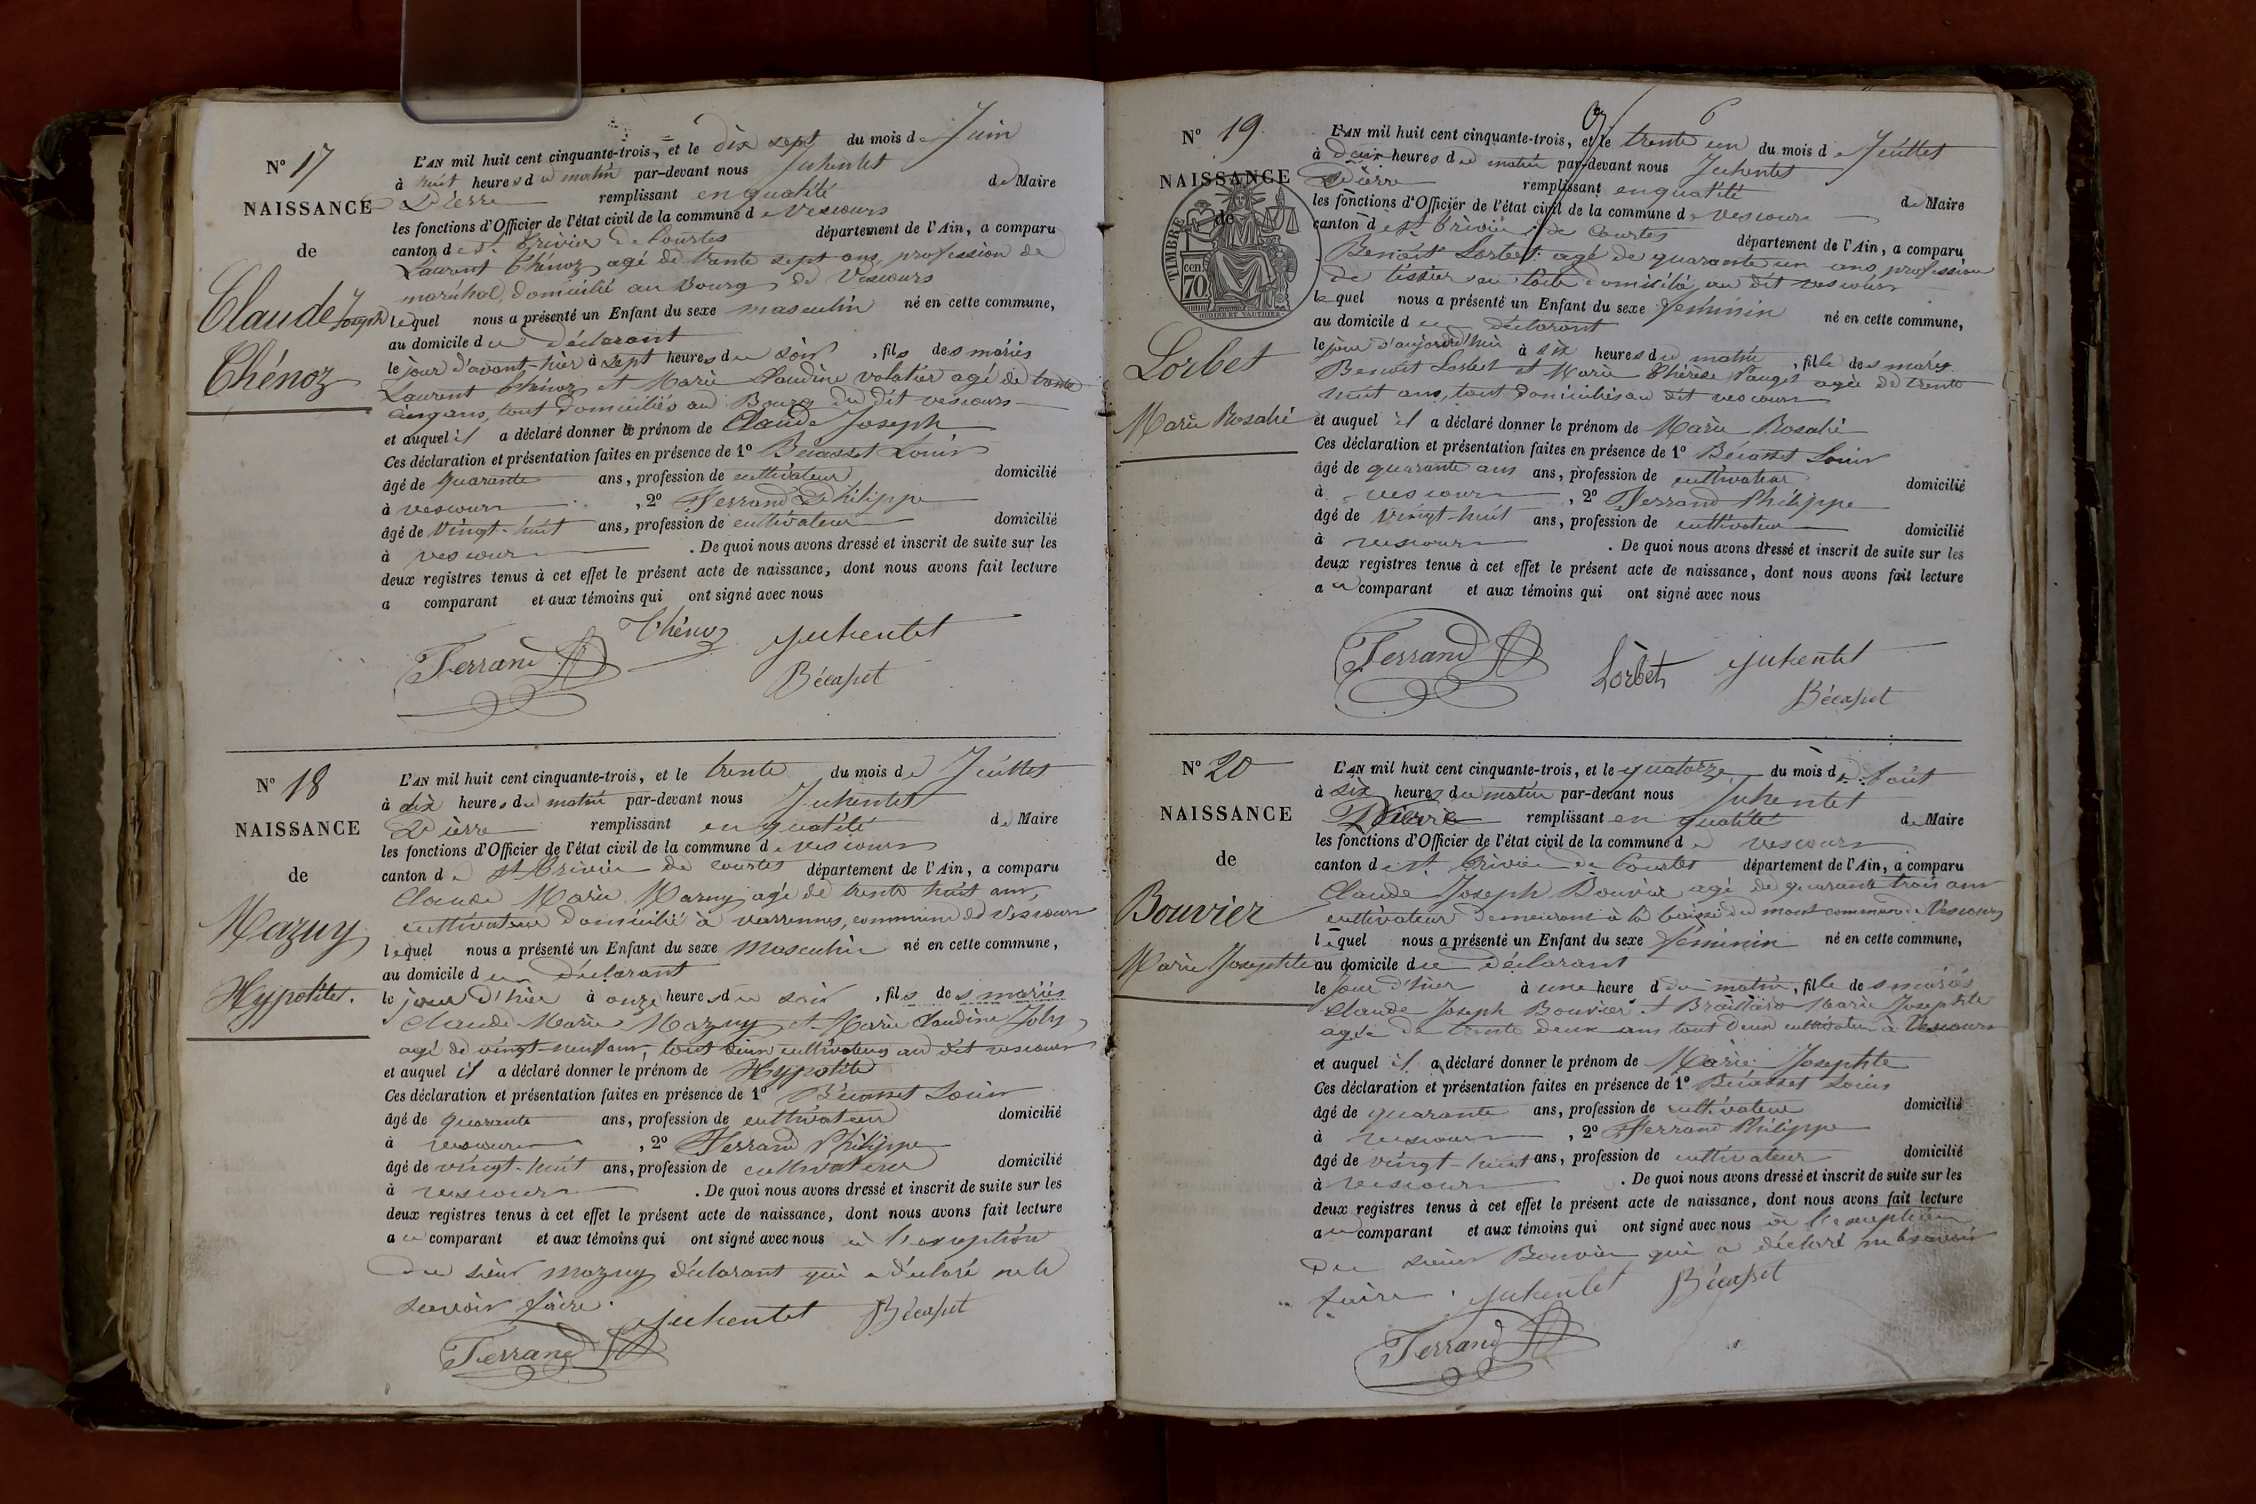 N° 17
NAISSANCE
de
Claude Joseph
Thénoz
L'AN mil huit cent cinquante-trois, et le dix sept du mois de Juin
à huit heures du matin par-devant nous Juhentet
Pierre remplissant en qualité de Maire
les fonctions d'Officier de l'état civil de la commune de Vescours
canton de St. Trivier de Courtes département de l'Ain, a comparu
Laurent Thénoz agé de trente sept ans, profession de
maréchal, domicilié au Bourg de Vescours
lequel nous a présenté un Enfant du sexe masculin né en cette commune,
au domicile du déclarant
le jour d'avant-hier à sept heures du soir, fils des mariés
Laurent Thénoz et Marie Claudine Volatier agé de trente
cinq ans, tout domiciliés au Bourg du dit vescours
et auquel il a déclaré donner le prénom de Claude Joseph
Ces déclaration et présentation faites en présence de 1° Bécasset Louis
âgé de quarante ans, profession de cultivateur domicilié
à vescours, 2° Ferrand Philippe
âgé de vingt-huit ans, profession de cultivateur domicilié
à vescours. De quoi nous avons dressé et inscrit de suite sur les
deux registres tenus à cet effet le présent acte de naissance, dont nous avons fait lecture
a comparant et aux témoins qui ont signé avec nous
Thénoz Juhentet
Ferrand Bécasset
N° 18
NAISSANCE
de
Mazuy
Hypolite.
L'AN mil huit cent cinquante-trois, et le trente du mois de Juillet
à dix heures du matin par-devant nous Juhentet
Pierre remplissant en qualité de Maire
les fonctions d'Officier de l'état civil de la commune de vescours
canton de St Trivier de Courtes département de l'Ain, a comparu
Claude Marie Mazuy agé de trente huit ans,
cultivateur domicilié à varrennes, commune de Vescours
lequel nous a présenté un Enfant du sexe Masculin né en cette commune,
au domicile du déclarant
le jour d'hier à onze heures du soir, fils des mariés
Claude Marie Mazuy et Marie Claudine Joly
agé de vingt-neuf ans, tout deux cultivateurs au dit vescours
et auquel il a déclaré donner le prénom de Hypolite
Ces déclaration et présentation faites en présence de 1° Bécasset Louis
âgé de quarante ans, profession de cultivateur domicilié
à vescours, 2° Ferrand Philippe
âgé de vingt-huit ans, profession de cultivateur domicilié
à vescours. De quoi nous avons dressé et inscrit de suite sur les
deux registres tenus à cet effet le présent acte de naissance, dont nous avons fait lecture
au comparant et aux témoins qui ont signé avec nous à l'exception
du sieur mazuy déclarant qui a déclaré ne le
savoir faire.
Juhentet Bécasset
Ferrand
6
N° 19.
NAISSANCE
de
TIMBRE
cen. 70
Lorbet
Marie Rosalie
L'AN mil huit cent cinquante-trois, et le trente un du mois de Juillet
à deux heures du matin par-devant nous Juhentet
Pierre remplissant en qualité de Maire
les fonctions d'Officier de l'état civil de la commune de vescours
canton de St Trivier de Courtes département de l'Ain, a comparu
Benoit Lorbet agé de quarante un ans, profession
de tissier en toile domicilié au dit vescours
lequel nous a présenté un Enfant du sexe féminin né en cette commune,
au domicile du déclarant
le jour d'aujourd'hui à six heures du matin, fille des mariés
Benoit Lorbet et Marie Thérèse Pauget agée de trente
huit ans, tout domiciliés au dit vescours
et auquel il a déclaré donner le prénom de Marie Rosalie
Ces déclaration et présentation faites en présence de 1° Bécasset Louis
âgé de quarante ans ans, profession de cultivateur domicilié
à vescours, 2° Ferrand Philippe
âgé de vingt-huit ans, profession de cultivateur domicilié
à vescours. De quoi nous avons dressé et inscrit de suite sur les
deux registres tenus à cet effet le présent acte de naissance, dont nous avons fait lecture
au comparant et aux témoins qui ont signé avec nous
Ferrand Lorbet Juhentet
Bécasset
N° 20
NAISSANCE
de
Bouvier
Marie Josephte
L'AN mil huit cent cinquante-trois, et le quatorze du mois de Août
à six heures du matin par-devant nous Juhentet
Pierre remplissant en qualité de Maire
les fonctions d'Officier de l'état civil de la commune de vescours
canton de St. Trivier de Courtes département de l'Ain, a comparu
Claude Joseph Bouvier agé de quarante trois ans
cultivateur demeurant à la baisse du mont commune de Vescours
lequel nous a présenté un Enfant du sexe féminin né en cette commune,
au domicile du déclarant
le jour d'hier à une heure du matin, fille des mariés
Claude Joseph Bouvier et Braillard Marie Josephte
agée de trente deux ans tout deux cultivateur à Vescours
et auquel il a déclaré donner le prénom de Marie Josephte
Ces déclaration et présentation faites en présence de 1° Bécasset Louis
âgé de quarante ans, profession de cultivateur domicilié
à vescours, 2° Ferrand Philippe
âgé de vingt-huit ans, profession de cultivateur domicilié
à vescours. De quoi nous avons dressé et inscrit de suite sur les
deux registres tenus à cet effet le présent acte de naissance, dont nous avons fait lecture
au comparant et aux témoins qui ont signé avec nous à l'exception
du sieur Bouvier qui a déclaré ne le savoir
faire. Juhentet Bécasset
Ferrand